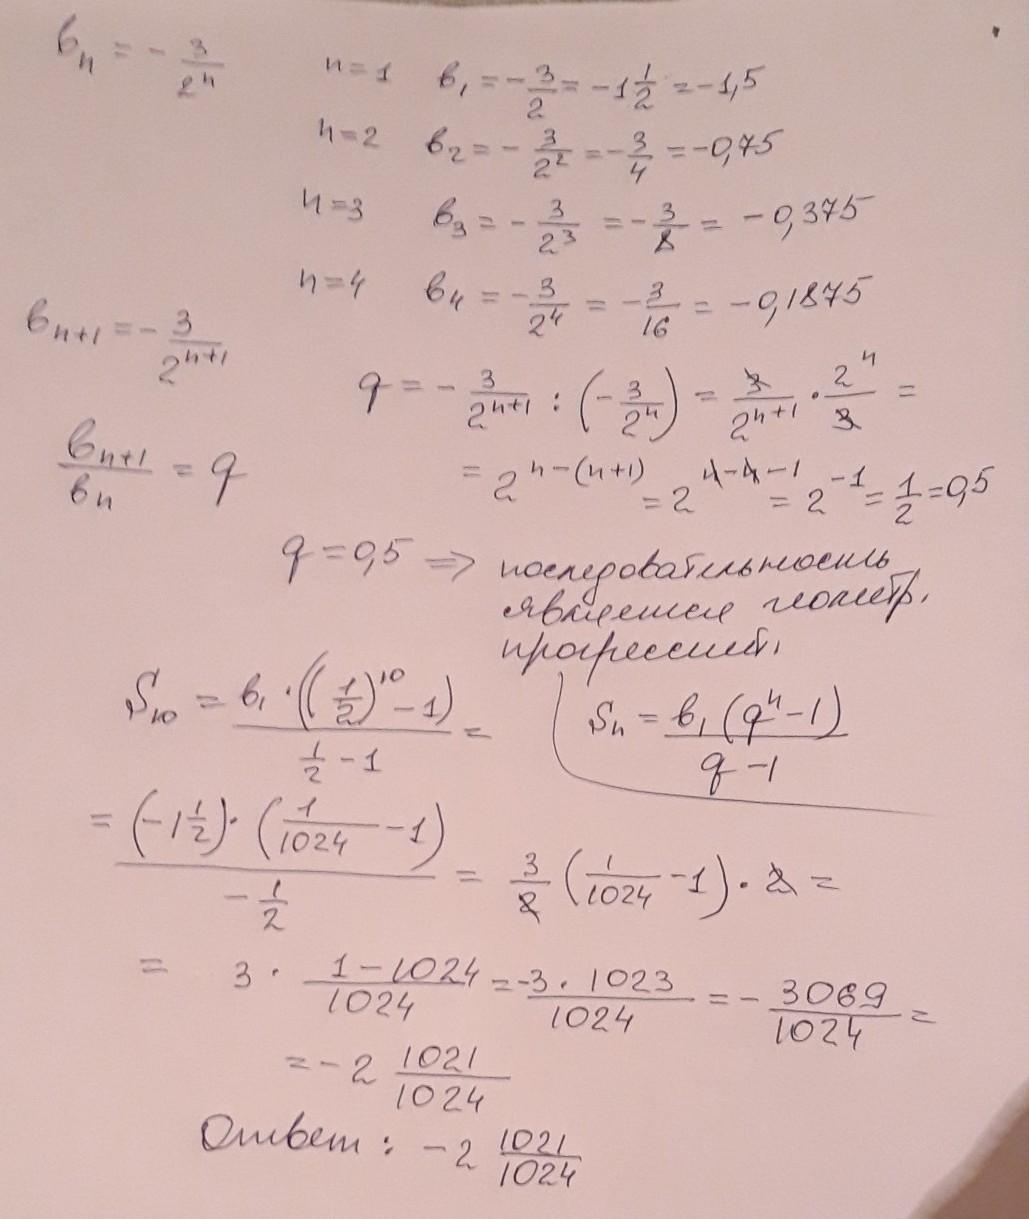 вₙ = - 3/2ⁿ
n=1 в₁ = - 3/2 = -1 1/2 = -1,5
n=2 в₂ = - 3/2² = - 3/4 = -0,75
n=3 в₃ = - 3/2³ = - 3/8 = -0,375
n=4 в₄ = - 3/2⁴ = - 3/16 = -0,1875
вₙ₊₁ = - 3/2ⁿ⁺¹
q = - 3/2ⁿ⁺¹ : (- 3/2ⁿ) = 3/2ⁿ⁺¹ · 2ⁿ/3 =
вₙ₊₁/вₙ = q
= 2ⁿ⁻⁽ⁿ⁺¹⁾ = 2ⁿ⁻ⁿ⁻¹ = 2⁻¹ = 1/2 = 0,5
q = 0,5 ⇒ последовательность
является геометр.
прогрессией.
S₁₀ = в₁ · ((1/2)¹⁰ - 1) / (1/2 - 1) =
Sₙ = в₁ (qⁿ - 1) / (q - 1)
= (-1 1/2) · (1/1024 - 1) / (- 1/2) = 3/2 (1/1024 - 1) · 2 =
= 3 · (1 - 1024)/1024 = -3 · 1023/1024 = - 3069/1024 =
= -2 1021/1024
Ответ : -2 1021/1024